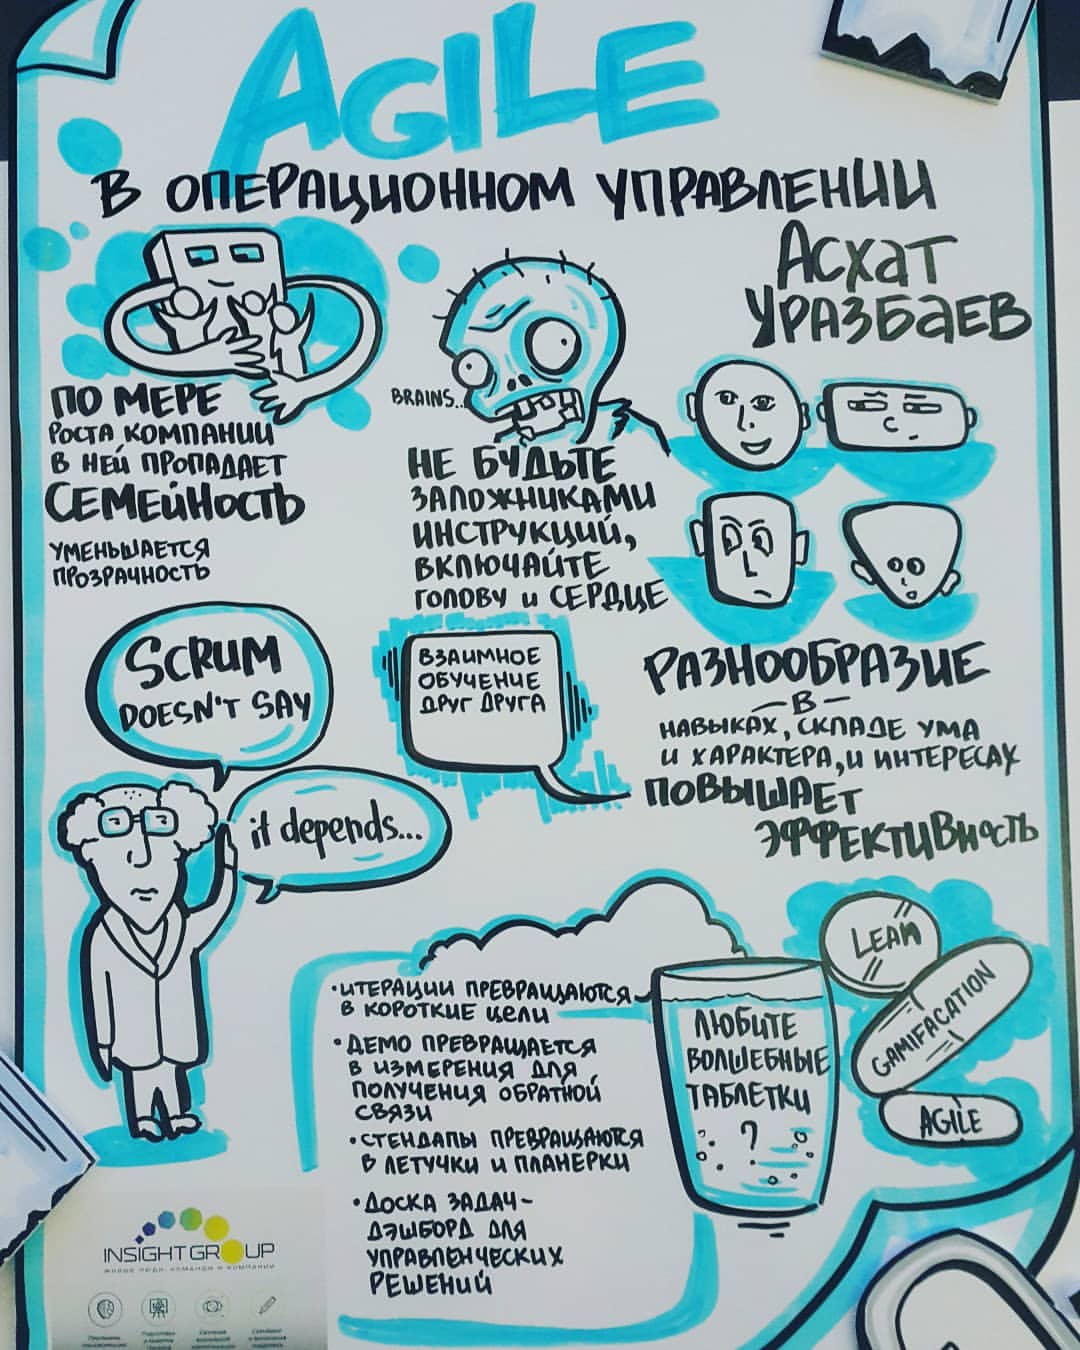 AGILE
В ОПЕРАЦИОННОМ УПРАВЛЕНИИ
АСХАТ
УРАЗБАЕВ
ПО МЕРЕ
РОСТА КОМПАНИИ
В НЕЙ ПРОПАДАЕТ
СЕМЕЙНОСТЬ
УМЕНЬШАЕТСЯ
ПРОЗРАЧНОСТЬ
BRAINS...
НЕ БУДЬТЕ
ЗАЛОЖНИКАМИ
ИНСТРУКЦИЙ,
ВКЛЮЧАЙТЕ
ГОЛОВУ И СЕРДЦЕ
SCRUM
DOESN'T SAY
it depends...
ВЗАИМНОЕ
ОБУЧЕНИЕ
ДРУГ ДРУГА
РАЗНООБРАЗИЕ
— В —
НАВЫКАХ, СКЛАДЕ УМА
И ХАРАКТЕРА, И ИНТЕРЕСАХ
ПОВЫШАЕТ
ЭФФЕКТИВНОСТЬ
• ИТЕРАЦИИ ПРЕВРАЩАЮТСЯ
В КОРОТКИЕ ЦЕЛИ
• ДЕМО ПРЕВРАЩАЕТСЯ
В ИЗМЕРЕНИЯ ДЛЯ
ПОЛУЧЕНИЯ ОБРАТНОЙ
СВЯЗИ
• СТЕНДАПЫ ПРЕВРАЩАЮТСЯ
В ЛЕТУЧКИ И ПЛАНЕРКИ
• ДОСКА ЗАДАЧ -
ДЭШБОРД ДЛЯ
УПРАВЛЕНЧЕСКИХ
РЕШЕНИЙ
ЛЮБИТЕ
ВОЛШЕБНЫЕ
ТАБЛЕТКИ
?
LEAN
GAMIFACATION
AGILE
INSIGHT GROUP
ЖИВЫЕ ЛЮДИ, КОМАНДЫ И КОМПАНИИ